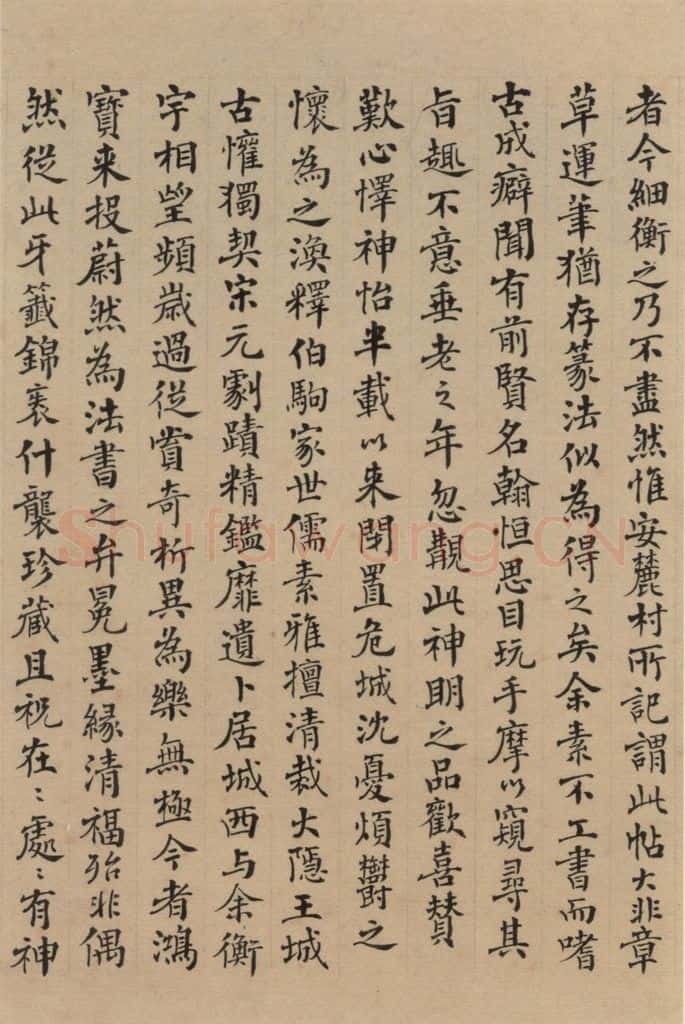 者今細衡之乃不盡然惟安麓村所記謂此帖大非章
草運筆猶存篆法似為得之矣余素不工書而嗜
古成癖聞有前賢名翰恒思目玩手摩以窺尋其
旨趣不意垂老之年忽覩此神明之品歡喜贊
歎心懌神怡半載以来閉置危城沈憂煩鬱之
懷為之渙釋伯駒家世儒素雅擅清裁大隱王城
古懽獨契宋元劇蹟精鑑靡遺卜居城西与余衡
宇相望頻歲過從賞奇析異為樂無極今者鴻
寶来投蔚然為法書之弁冕墨緣清福殆非偶
然從此牙籤錦裹什襲珍藏且祝在〻處〻有神
Shufawang.CN